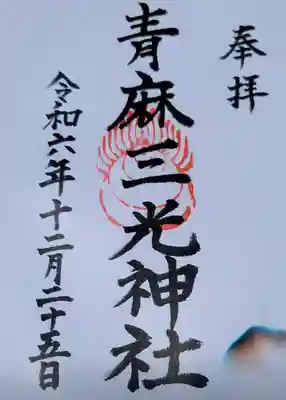 奉拝
青麻三光神社
令和六年十二月二十五日